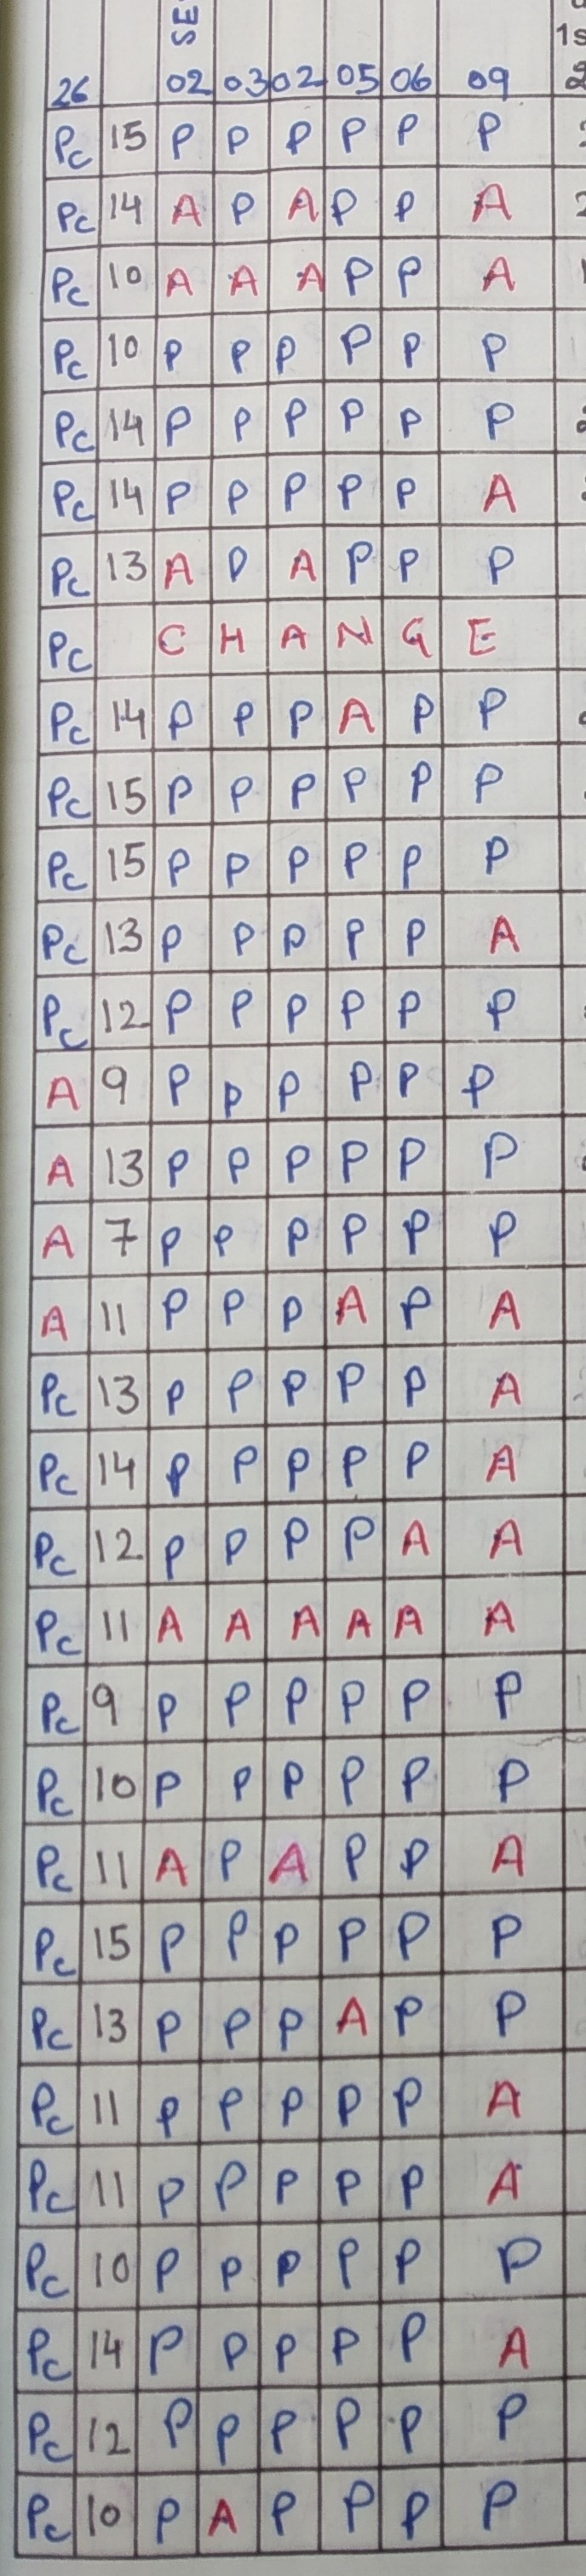 SE
1s
26 02 03 02 05 06 09
Pc 15 P P P P P P
Pc 14 A P A P P A
Pc 10 A A A P P A
Pc 10 P P P P P P
Pc 14 P P P P P P
Pc 14 P P P P P A
Pc 13 A P A P P P
Pc C H A N G E
Pc 14 P P P A P P
Pc 15 P P P P P P
Pc 15 P P P P P P
Pc 13 P P P P P A
Pc 12 P P P P P P
A 9 P P P P P P
A 13 P P P P P P
A 7 P P P P P P
A 11 P P P A P A
Pc 13 P P P P P A
Pc 14 P P P P P A
Pc 12 P P P P A A
Pc 11 A A A A A A
Pc 9 P P P P P P
Pc 10 P P P P P P
Pc 11 A P A P P A
Pc 15 P P P P P P
Pc 13 P P P A P P
Pc 11 P P P P P A
Pc 11 P P P P P A
Pc 10 P P P P P P
Pc 14 P P P P P A
Pc 12 P P P P P P
Pc 10 P A P P P P